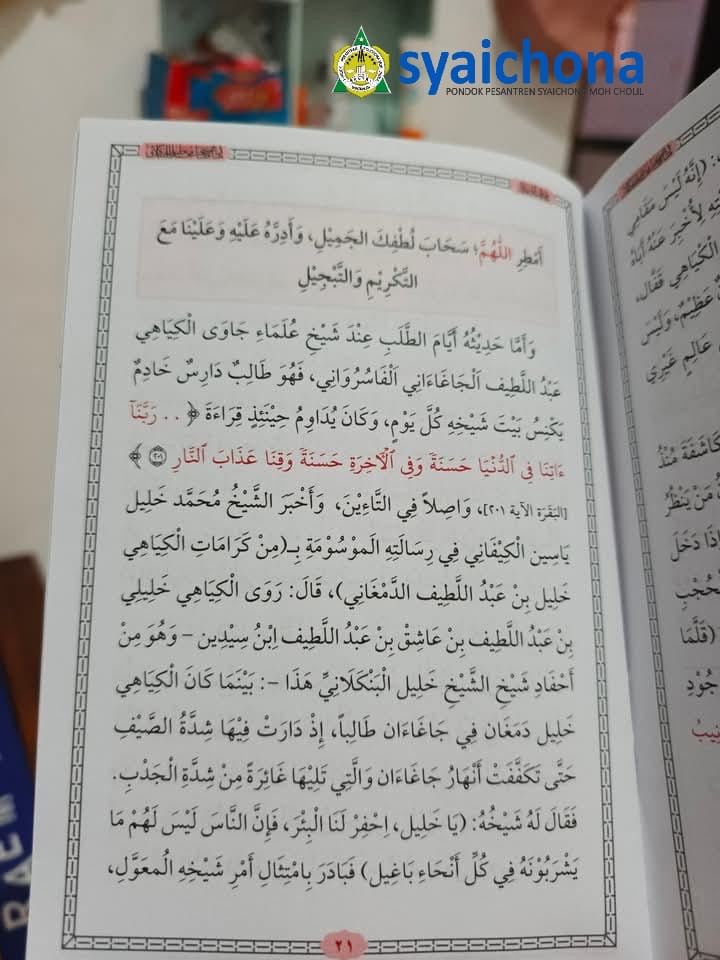 syaichona
PONDOK PESANTREN SYAICHONA MOH CHOLIL
أَمْطِرِ اللّٰهُمَّ؛ سَحَابَ لُطْفِكَ الجَمِيْلِ، وَأَدِرَّهُ عَلَيْهِ وَعَلَيْنَا مَعَ
التَّكْرِيْمِ وَالتَّبْجِيْلِ
وَأَمَّا حَدِيْثُهُ أَيَّامَ الطَّلَبِ عِنْدَ شَيْخِ عُلَمَاءِ جَاوَى الْكِيَاهِي
عَبْدُ اللَّطِيف اَلْجَاغَاءَانِي اَلْفَاسُرُوَانِي، فَهُوَ طَالِبٌ دَارِسٌ خَادِمٌ
يَكْنُسُ بَيْتَ شَيْخِهِ كُلَّ يَوْمٍ، وَكَانَ يُدَاوِمُ حِيْنَئِذٍ قِرَاءَةَ ﴿ .. رَبَّنَآ
ءَاتِنَا فِي ٱلدُّنْيَا حَسَنَةً وَفِي ٱلْآخِرَةِ حَسَنَةً وَقِنَا عَذَابَ ٱلنَّارِ ٢٠١ ﴾
[البَقَرَة الآية ٢٠١]، وَاصِلاً فِي التَّاءِيْنَ، وَأَخْبَرَ الشَّيْخُ مُحَمَّد خَلِيل
يَاسِين الْكِيْفَانِي فِي رِسَالَتِهِ المَوْسُوْمَةِ بِـ(مِنْ كَرَامَاتِ الْكِيَاهِي
خَلِيل بِنْ عَبْدُ اللَّطِيف الدَّمْغَانِي)، قَالَ: رَوَى الْكِيَاهِي خَلِيلِي
بِنْ عَبْدُ اللَّطِيف بِنْ عَاشِقْ بِنْ عَبْدُ اللَّطِيف اِبْنُ سِيْدِين - وَهُوَ مِنْ
أَحْفَادِ شَيْخِ الشَّيْخِ خَلِيل الْبَنْكَلَانِيِّ هَذَا -: بَيْنَمَا كَانَ الْكِيَاهِي
خَلِيل دَمَغَان فِي جَاغَاءَان طَالِباً، إِذْ دَارَتْ فِيْهَا شِدَّةُ الصَّيْفِ
حَتَّى تَكَفَّفَتْ أَنْهَارُ جَاغَاءَان وَالَّتِي تَلِيْهَا غَائِرَةً مِنْ شِدَّةِ الْجَدْبِ.
فَقَالَ لَهُ شَيْخُهُ: (يَا خَلِيل، اِحْفِرْ لَنَا الْبِئْرَ، فَإِنَّ النَّاسَ لَيْسَ لَهُمْ مَا
يَشْرَبُوْنَهُ فِي كُلِّ أَنْحَاءِ بَاغِيل) فَبَادَرَ بِامْتِثَالِ أَمْرِ شَيْخِهِ الْمعَوَّلِ،
٢١